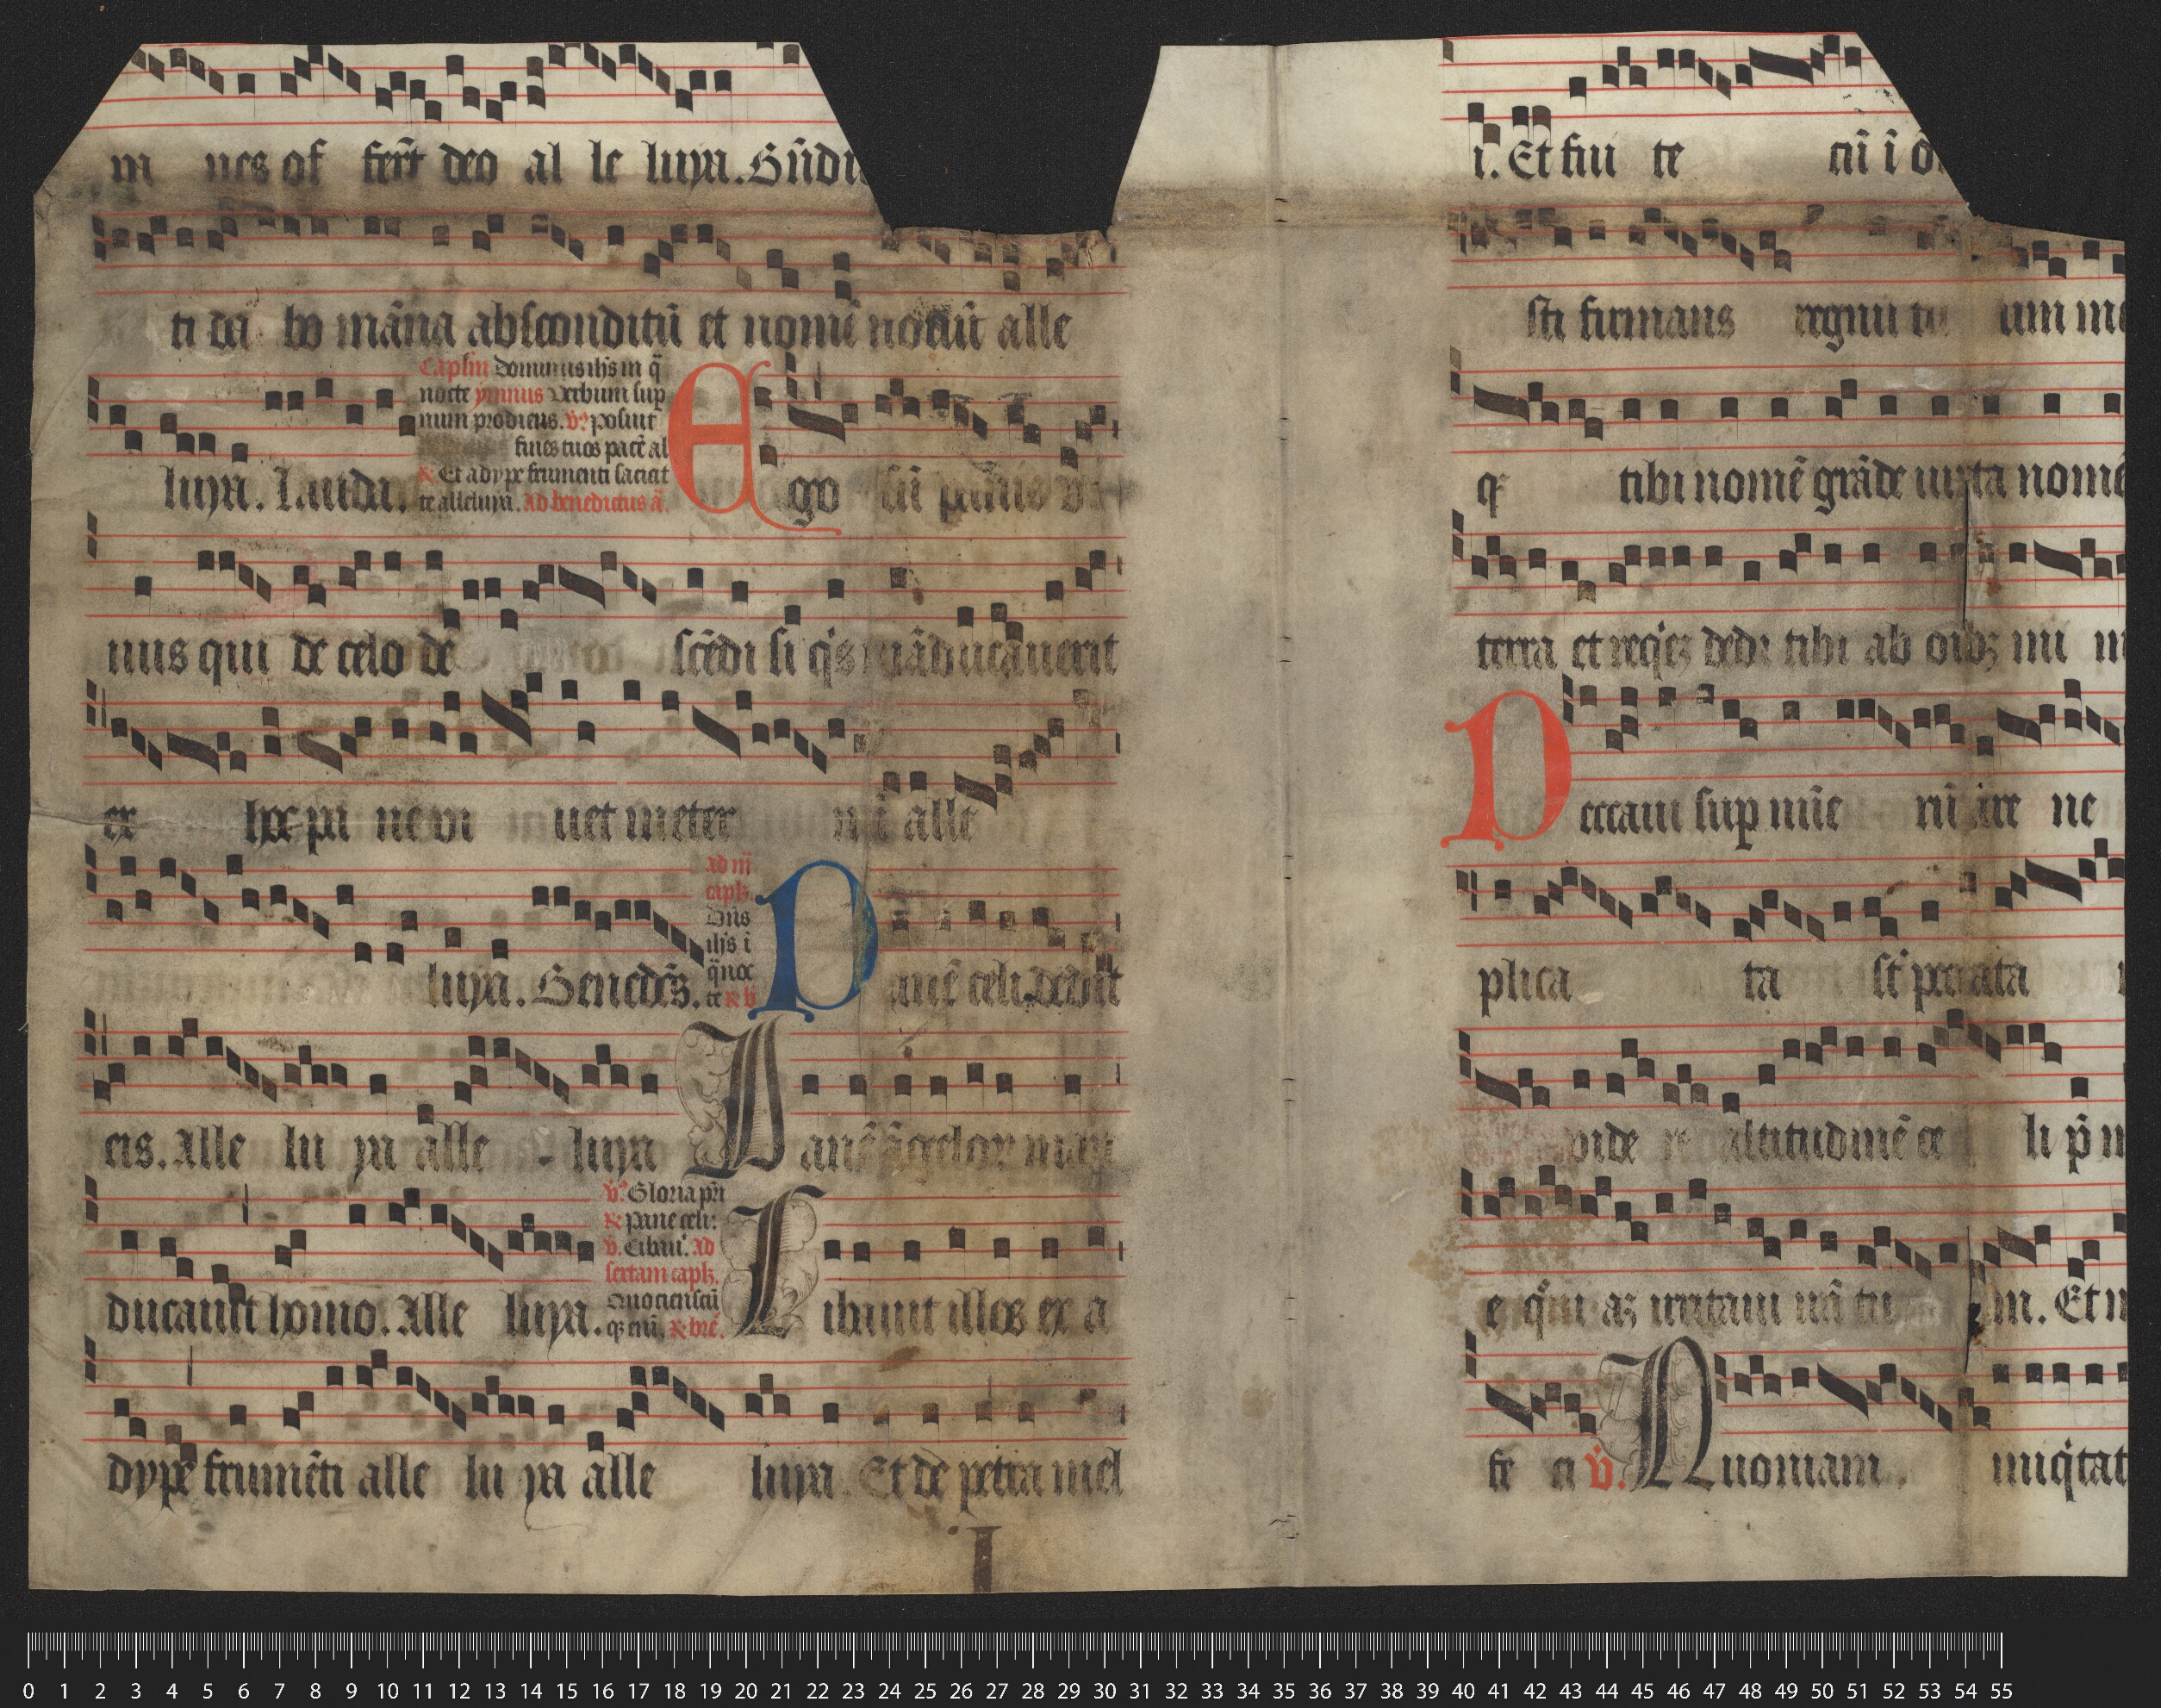 m nes of fert̄ deo al le luya. S
ti da bo māna absconditū et nomē nouū alle
Caplm̄ Dominus ihs in q̄
nocte ymnus Verbum sup
num prodiens. v̄. posuit
fines tuos pacē al
℟. Et adype frumenti saciat
te alleluya. Ad benedictus ā.
luya. Lauda. Ego sū panis vi
uus qui de celo de scēdi si q's māducauerit
ex hoc pa ne vi uet in eter nū alle
Ad iii
caph.
Dn̄s
ihs ī
q̄ noc
te ℟ b
luya. Benedc̄s. Panē celi dedit
eis. Alle lu ya alle luya Panē āgelor man
v̄. Gloria pr̄i
℟. panē celi:
v̄. Cibaui. Ad
sextam caph.
Quociensciū
q; eni. ℟ bre.
ducauit homo. Alle luya. Cibauit illos ex a
dype frumēti alle lu ya alle luya Et de petra mel
i. Et fui te cū ī o
sti firmans regnū tu um me
q; tibi nomē grāde iuxta nomē
terra et req'ez dedi tibi ab oib; mi m
Peccaui sup nūe rū are ne
plica ta st' peccata
vide re altitudinē ce li p̄ n
e q'm az iritaui irā tu am. Et m
fe ci v̄. Quoniam iniq'tat